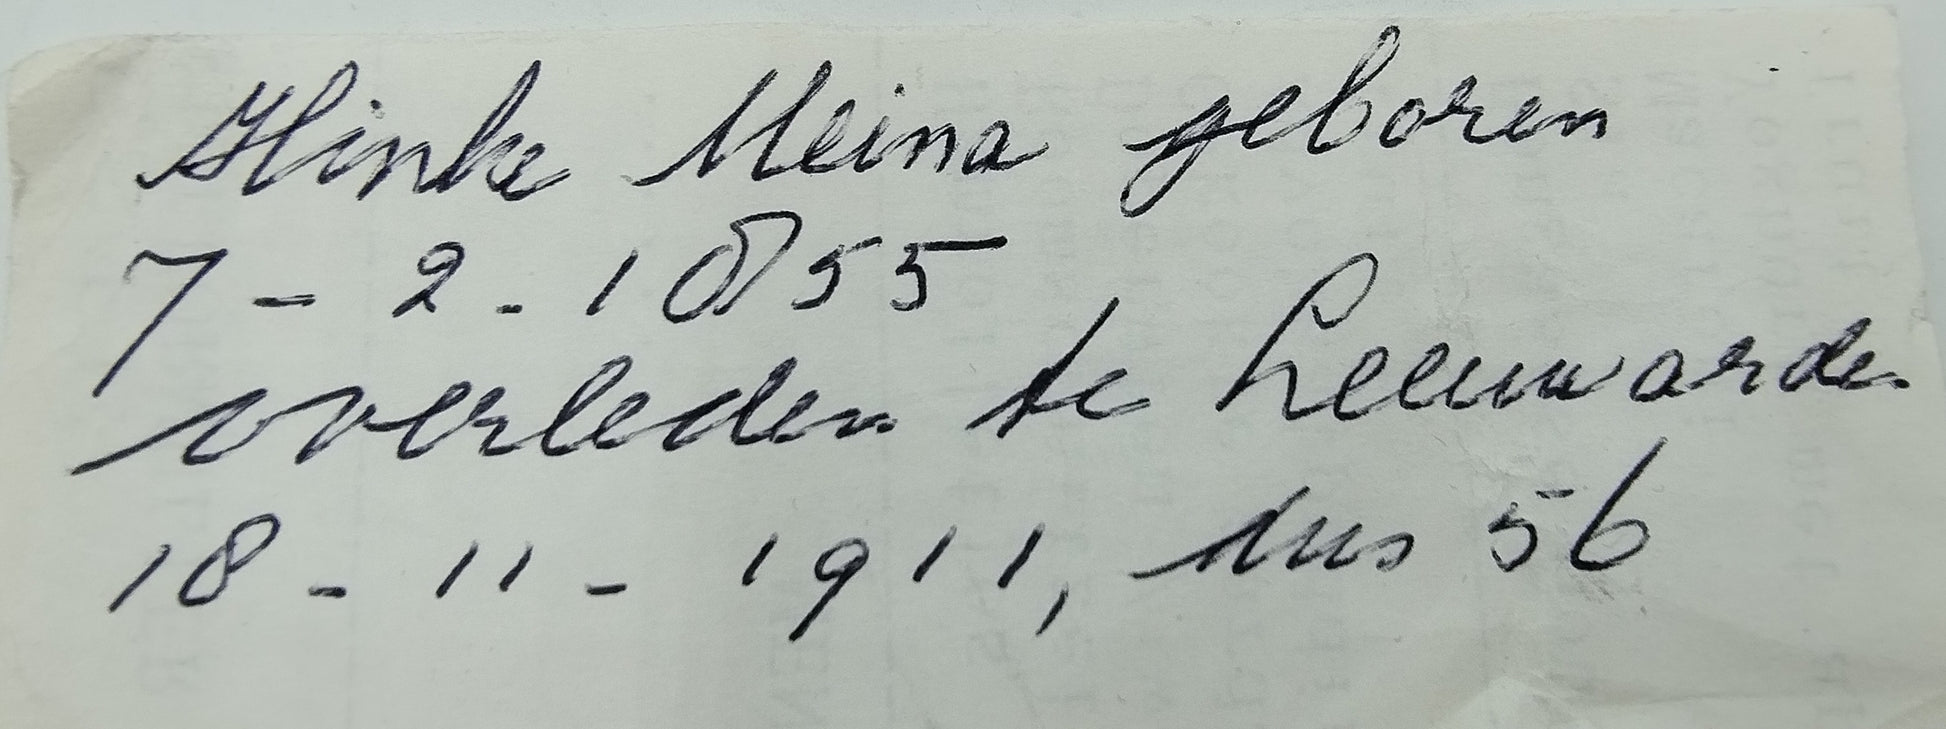 Hinke Meina geboren
7 - 2 - 1855
overleden te Leeuwarden
18 - 11 - 1911, dus 56